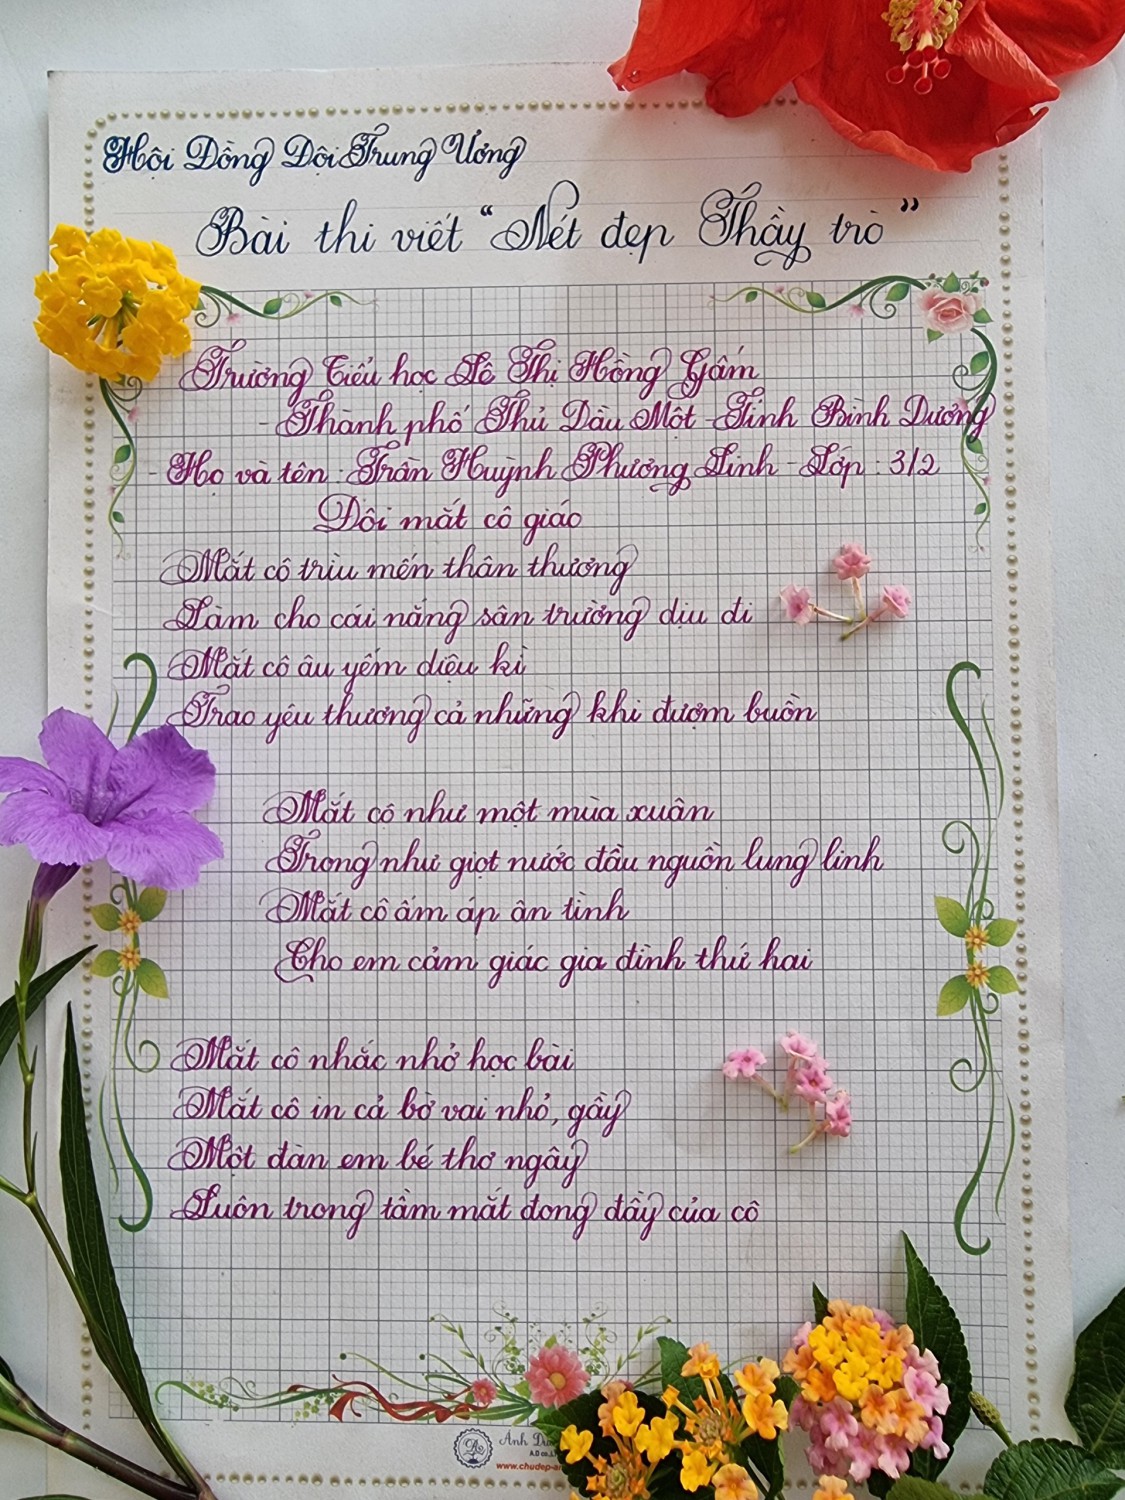 Hội Đồng Đội Trung Ương
Bài thi viết “Nét đẹp Thầy trò”
Trường Tiểu học Lê Thị Hồng Gấm
- Thành phố Thủ Dầu Một - Tỉnh Bình Dương
- Họ và tên : Trần Huỳnh Phương Linh - Lớp : 3/2
Đôi mắt cô giáo
Mắt cô trìu mến thân thương
Làm cho cái nắng sân trường dịu đi
Mắt cô âu yếm diệu kì
Trao yêu thương cả những khi đượm buồn
Mắt cô như một mùa xuân
Trong như giọt nước đầu nguồn lung linh
Mắt cô ấm áp ân tình
Cho em cảm giác gia đình thứ hai
Mắt cô nhắc nhở học bài
Mắt cô in cả bờ vai nhỏ, gầy
Một đàn em bé thơ ngây
Luôn trong tầm mắt đong đầy của cô
Ánh
A.D co.,l
www.chudep-a